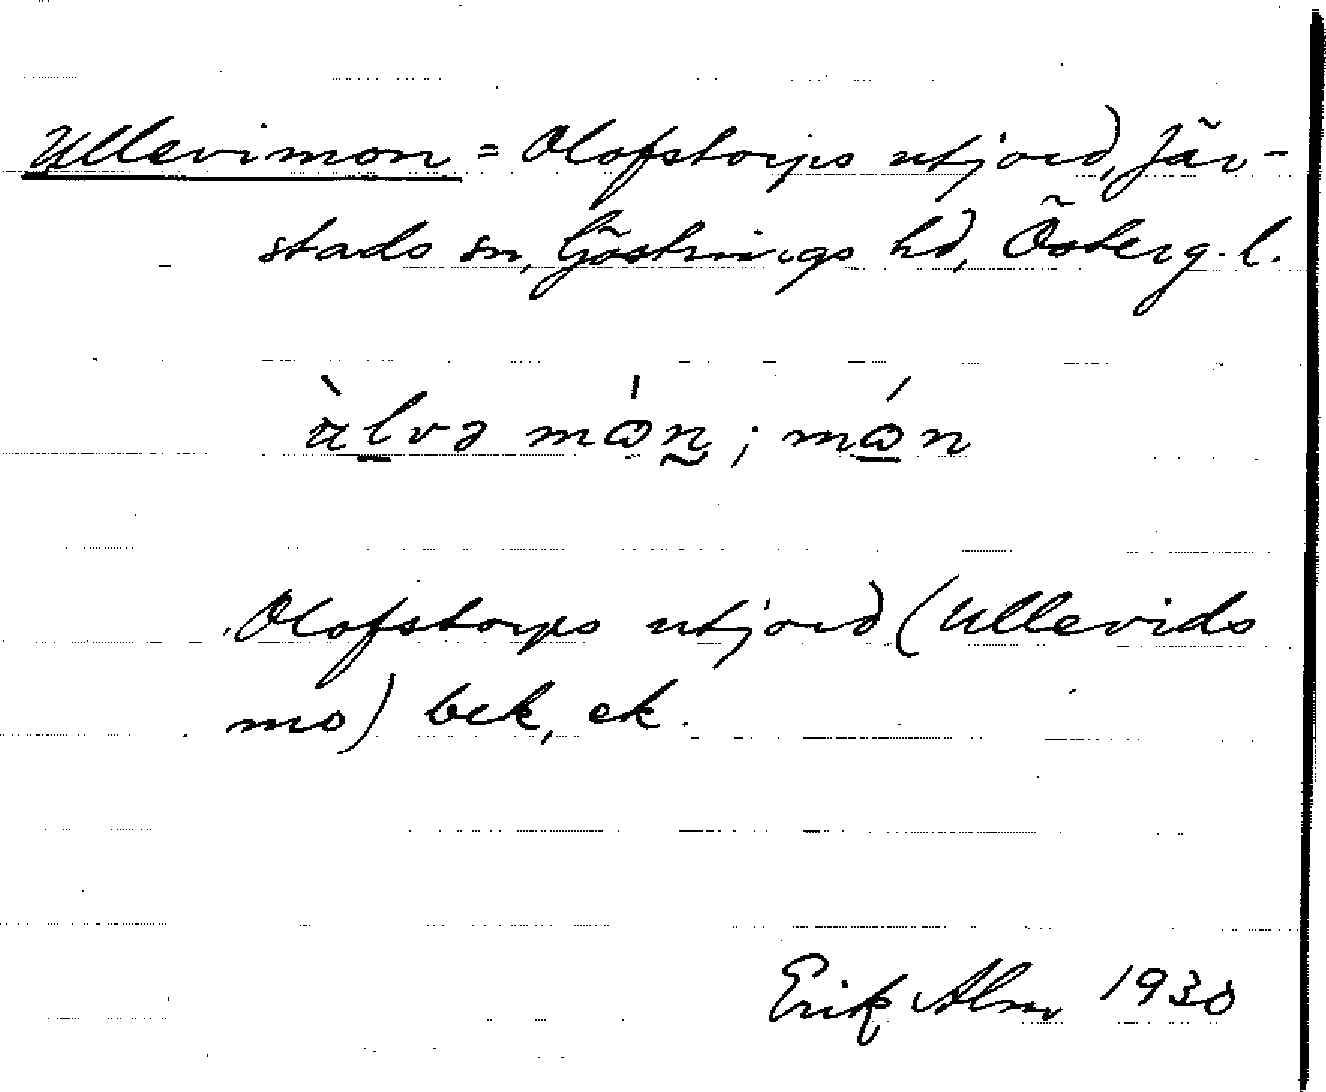 Ullevimon = Olofstorps utjord, Jär-
stads sn, Göstrings hd, Österg. l.
ùlvə món; món
Olofstorps utjord (Ullevids
mo) bek, ek.
Erik Alm 1930